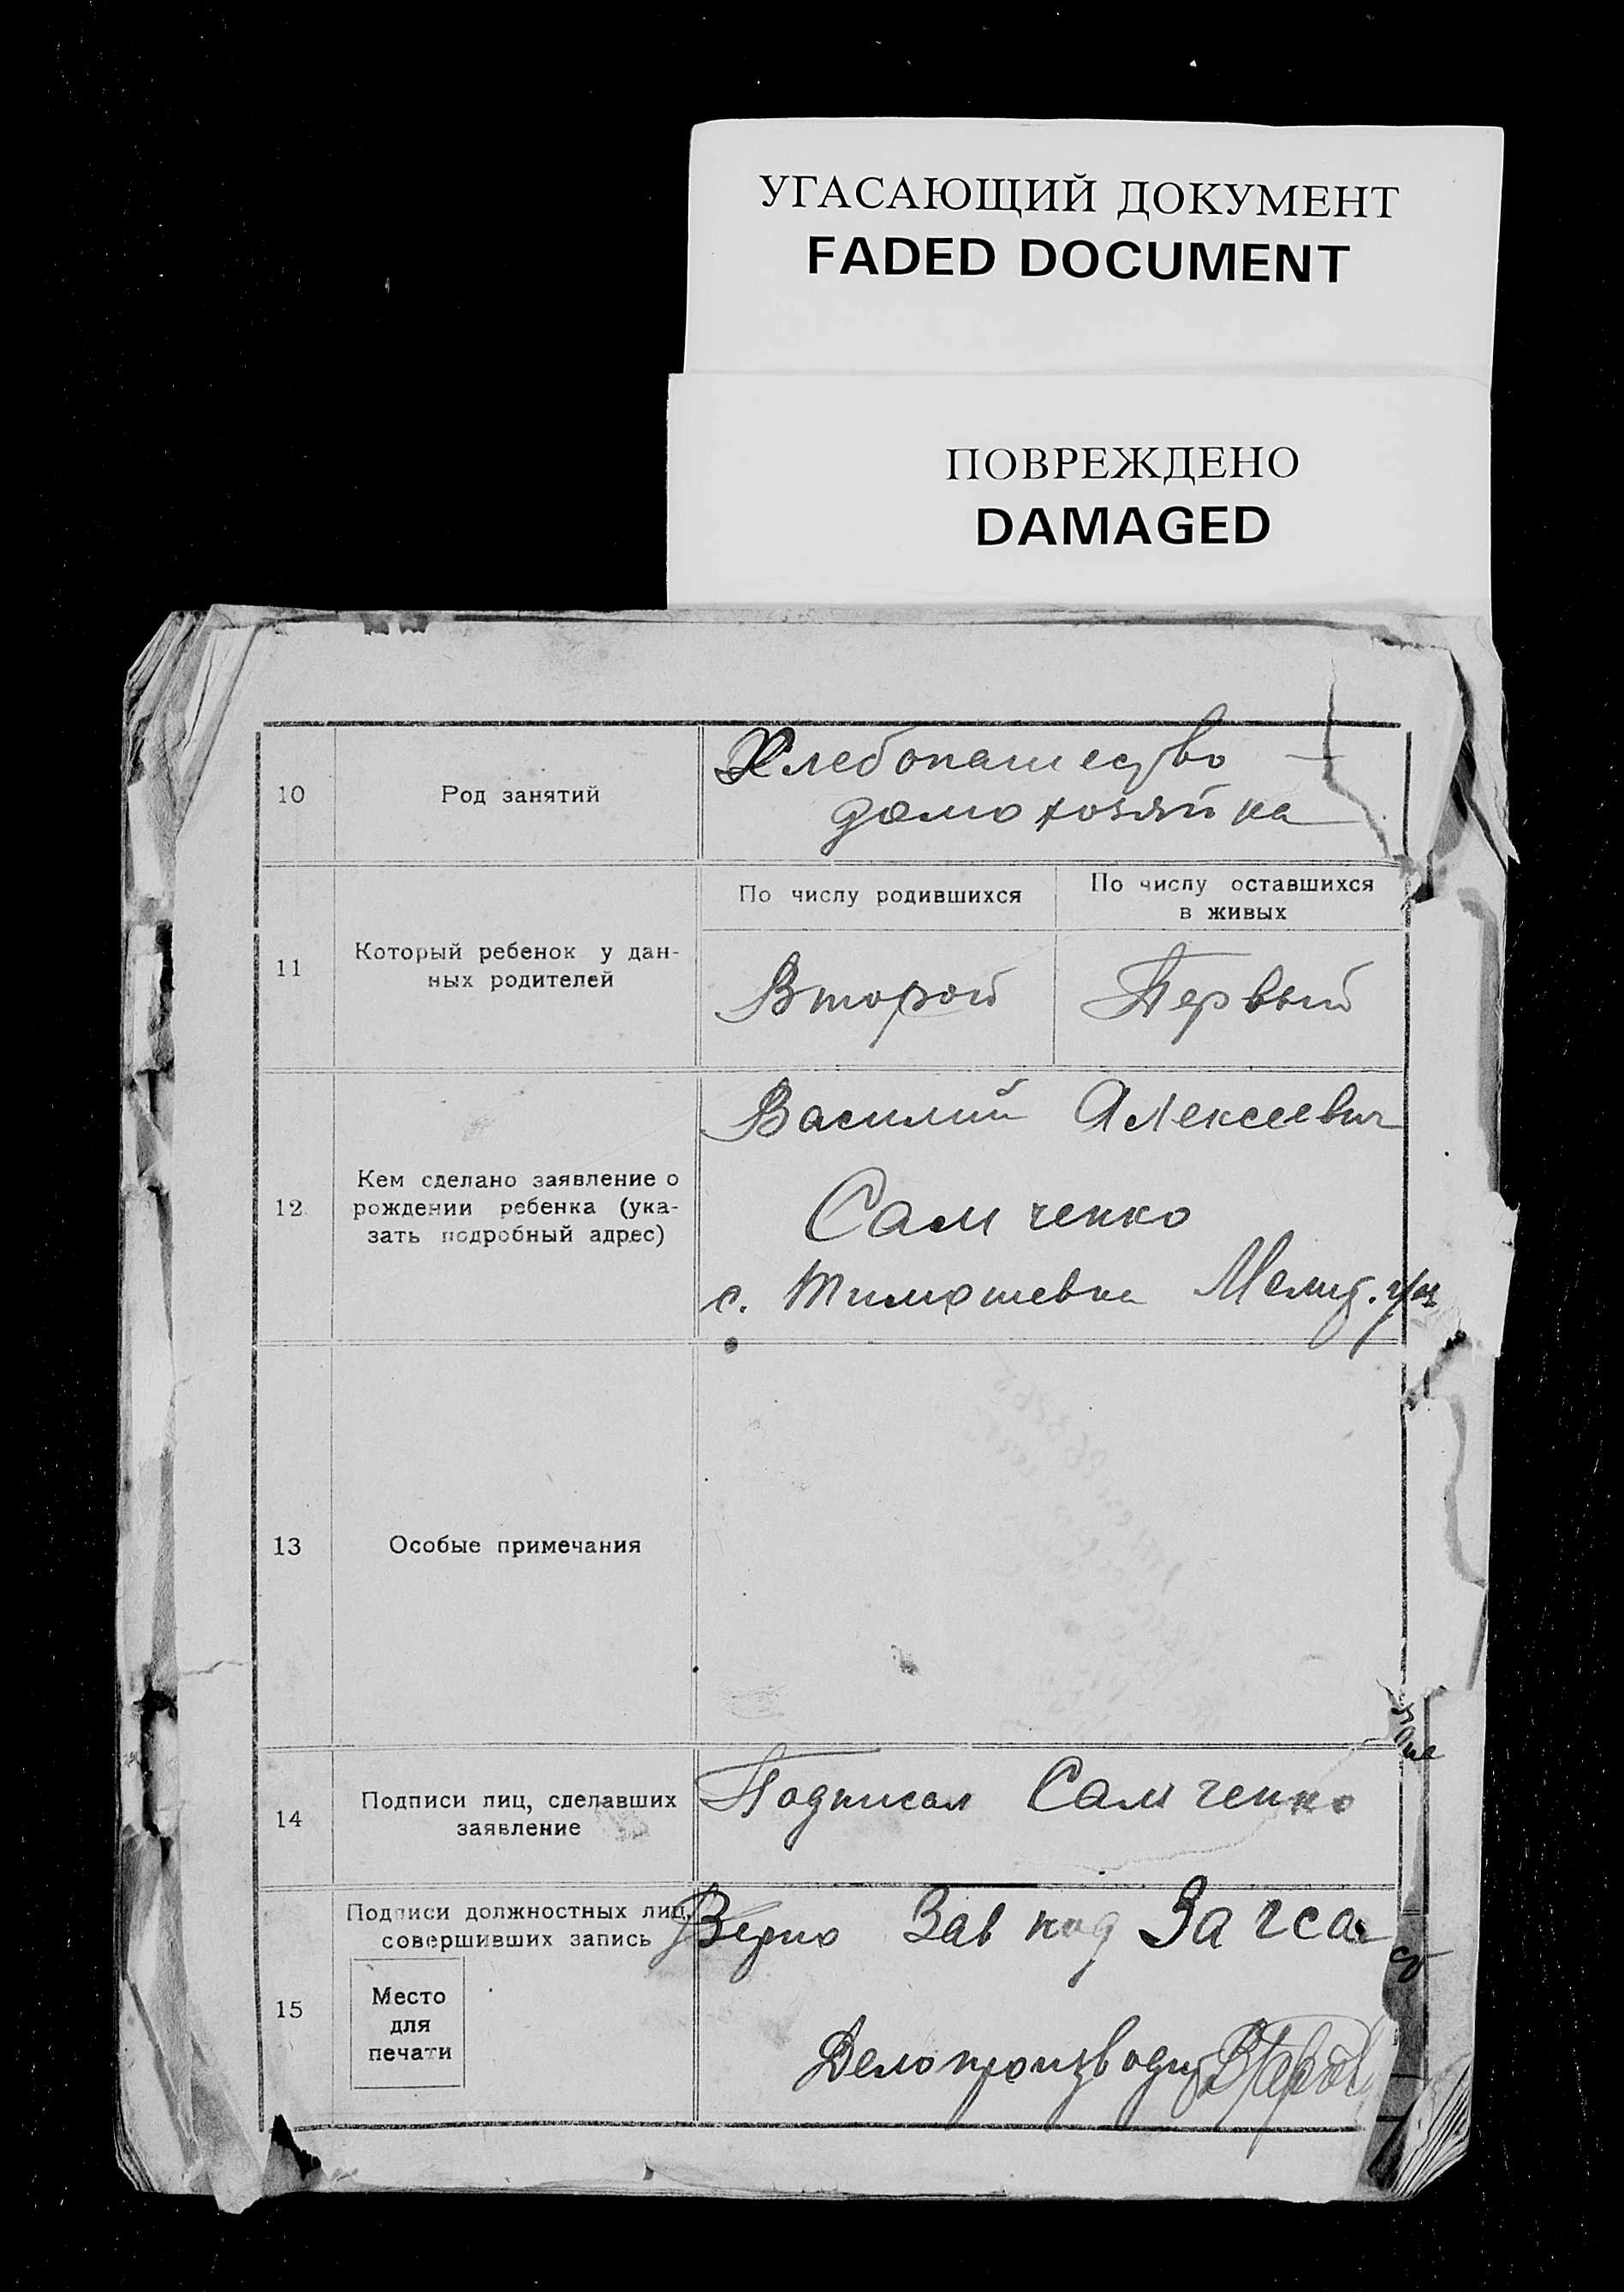 УГАСАЮЩИЙ ДОКУМЕНТ
FADED DOCUMENT
ПОВРЕЖДЕНО
DAMAGED
10
Род занятий
Хлебопашество
домохозяйка
11
Который ребенок у дан-
ных родителей
По числу родившихся
По числу оставшихся
в живых
Второй
Первый
12
Кем сделано заявление о
рождении ребенка (ука-
зать подробный адрес)
Василий Алексеевич
Самченко
с. Тимошевка Мелит.
13
Особые примечания
14
Подписи лиц, сделавших
заявление
Подписал Самченко
15
Подписи должностных лиц,
совершивших запись
Место
для
печати
Верно Зав под Загса
Делопроизводит